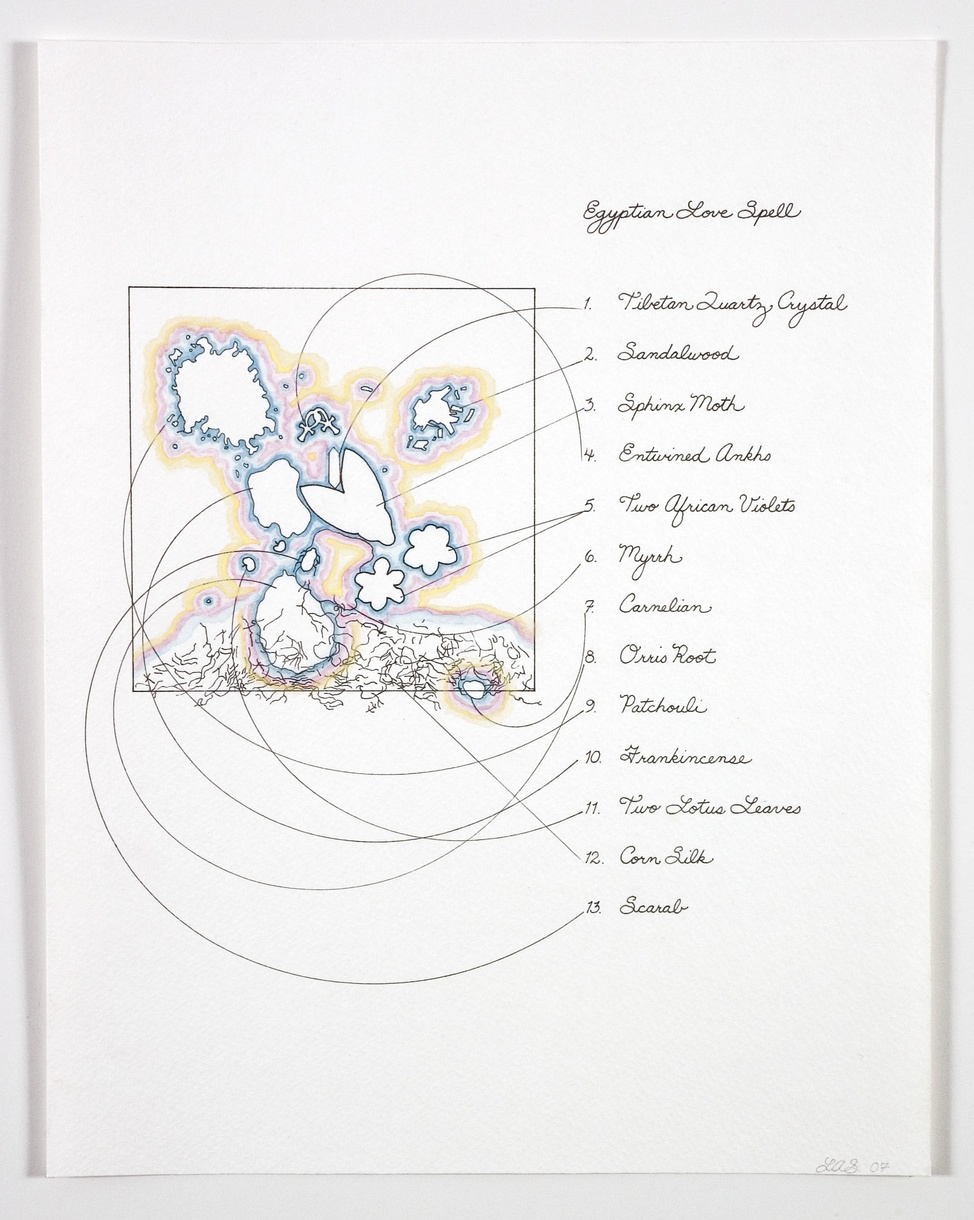 Egyptian Love Spell
1. Tibetan Quartz Crystal
2. Sandalwood
3. Sphinx Moth
4. Entwined Ankhs
5. Two African Violets
6. Myrrh
7. Carnelian
8. Orris Root
9. Patchouli
10. Frankincense
11. Two Lotus Leaves
12. Corn Silk
13. Scarab
LAS 07